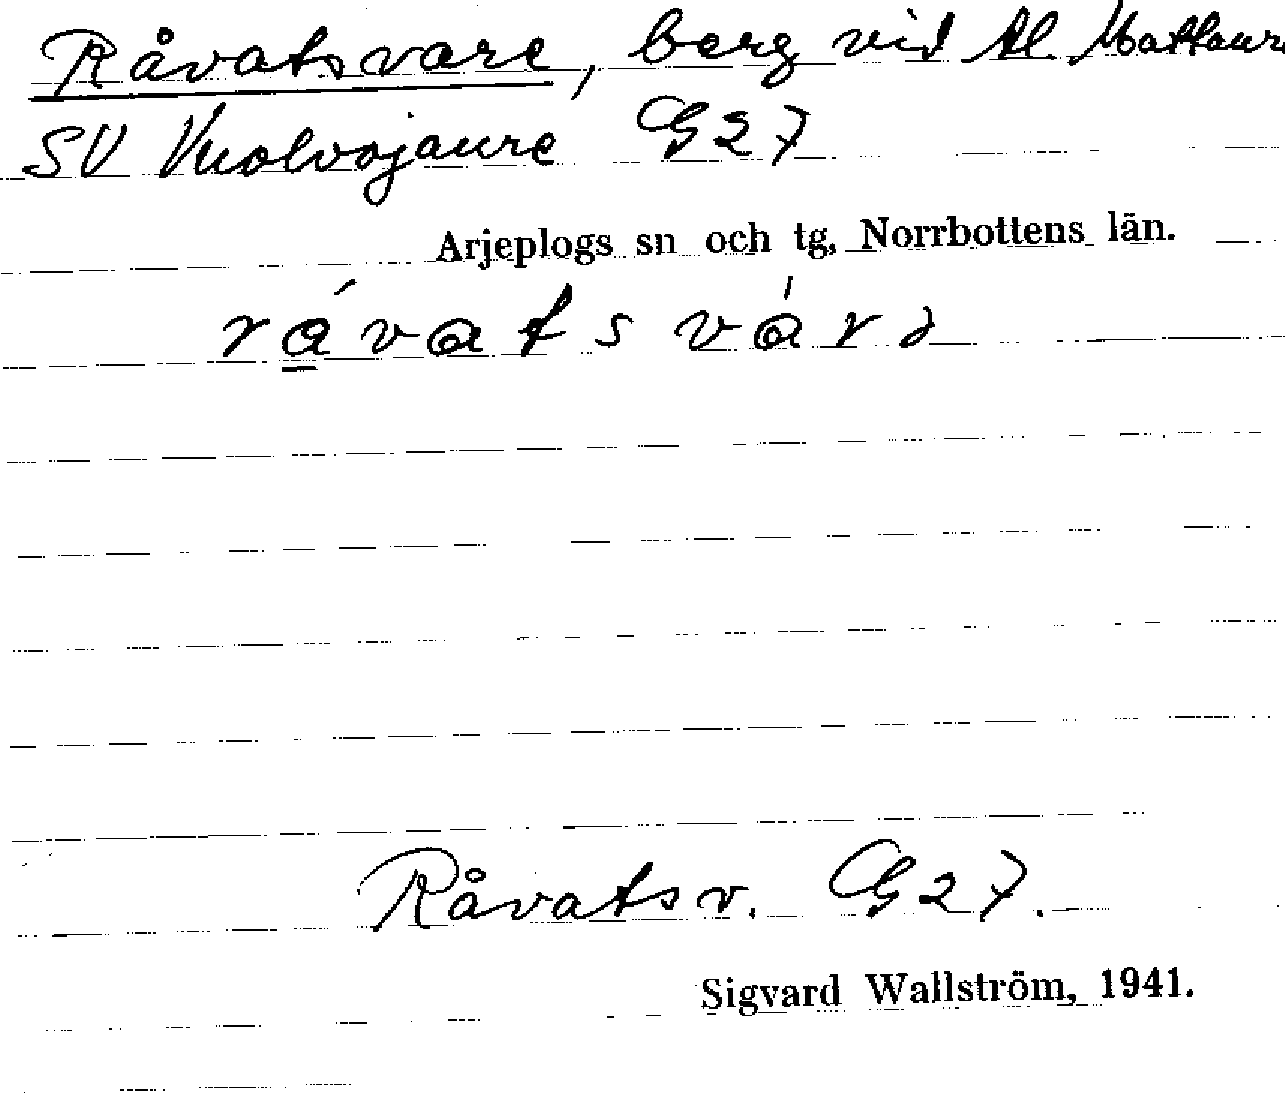 Råvatsvare, berg vid St. Mattaure
SV Vuolvojaure G27
Arjeplogs sn och tg, Norrbottens län.
rá̱vatsvárə
Råvatsv. G27.
Sigvard Wallström, 1941.